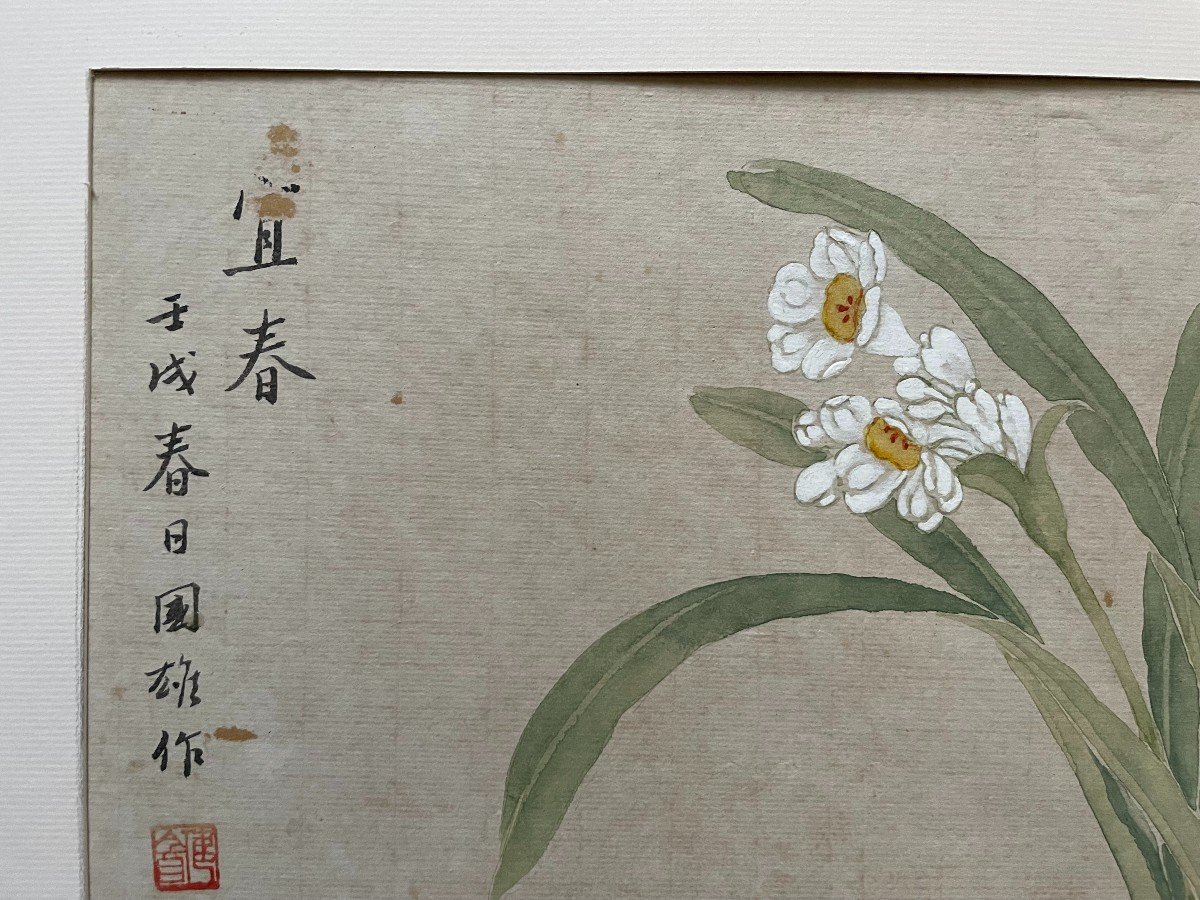 宜春
壬戌春日國雄作